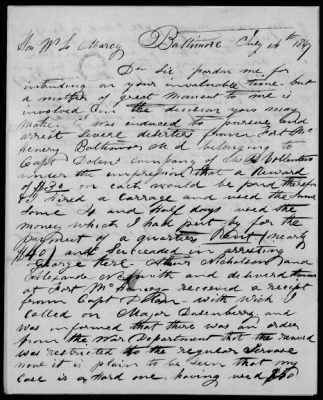 Hon Wm L Marcy Baltimore July 14th 1847
Dr Sir pardon me for
intruding on your invaluable time but
a matter of great moment to me is
involved in the decision you may
make. I was induced to pursue and
arrest severl deserters from Fort Mc
henery Baltimore Md belonging to
Capt Dolans company of Vollenters
under the impression that a Reward
of $30 on each would be paid therefor
I hired a carrage and used the same
some 4 and half days used the
money which I had by for the
payment of a quarters Rent / nearly
$40 / and succeaded in arresting
George Nicholeson and
Smith and delivered them
at Fort McHenry received a recept
from Capt Dolan - with wich I
called on Major and
was informed that there was an order
from the War Department that the reward
was restricted to the regular servase
now it is plain to be seen that my
case is a hard one, having used $60